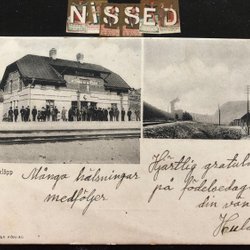 NISSED
löpp
Många hälsningar
medföljer.
Hjärtlig gratula
på födelsedag
din vän
Hul